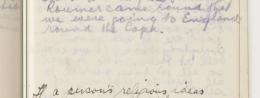 Rumour came round that
we were going to England
round the Cape.
If a person's religious ideas